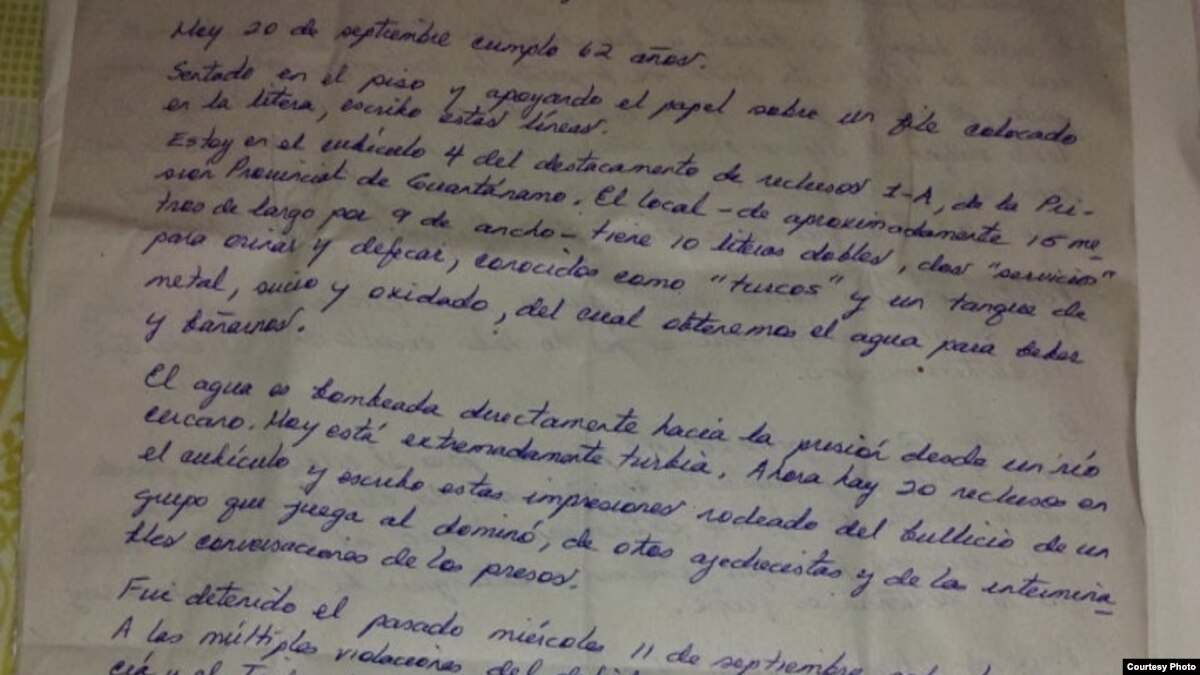 Hoy 20 de septiembre cumplo 62 años.
Sentado en el piso y apoyando el papel sobre un file colocado
en la litera, escribo estas líneas.
Estoy en el cubículo 4 del destacamento de reclusos 1-A, de la Pri-
sión Provincial de Guantánamo. El local - de aproximadamente 15 me
tros de largo por 9 de ancho - tiene 10 literas dobles, dos "servicios"
para orinar y defecar, conocidos como "turcos" y un tanque de
metal, sucio y oxidado, del cual obtenemos el agua para beber
y bañarnos.
El agua es bombeada directamente hacia la presión desde un río
cercano. Hoy está extremadamente turbia. Ahora hay 20 reclusos en
el cubículo y escribo estas impresiones rodeado del bullicio de un
grupo que juega al dominó, de otos ajedrecistas y de las intermina
bles conversaciones de los presos.
Fui detenido el pasado miércoles 11 de septiembre
A las múltiples violaciones del
cía y el
Courtesy Photo